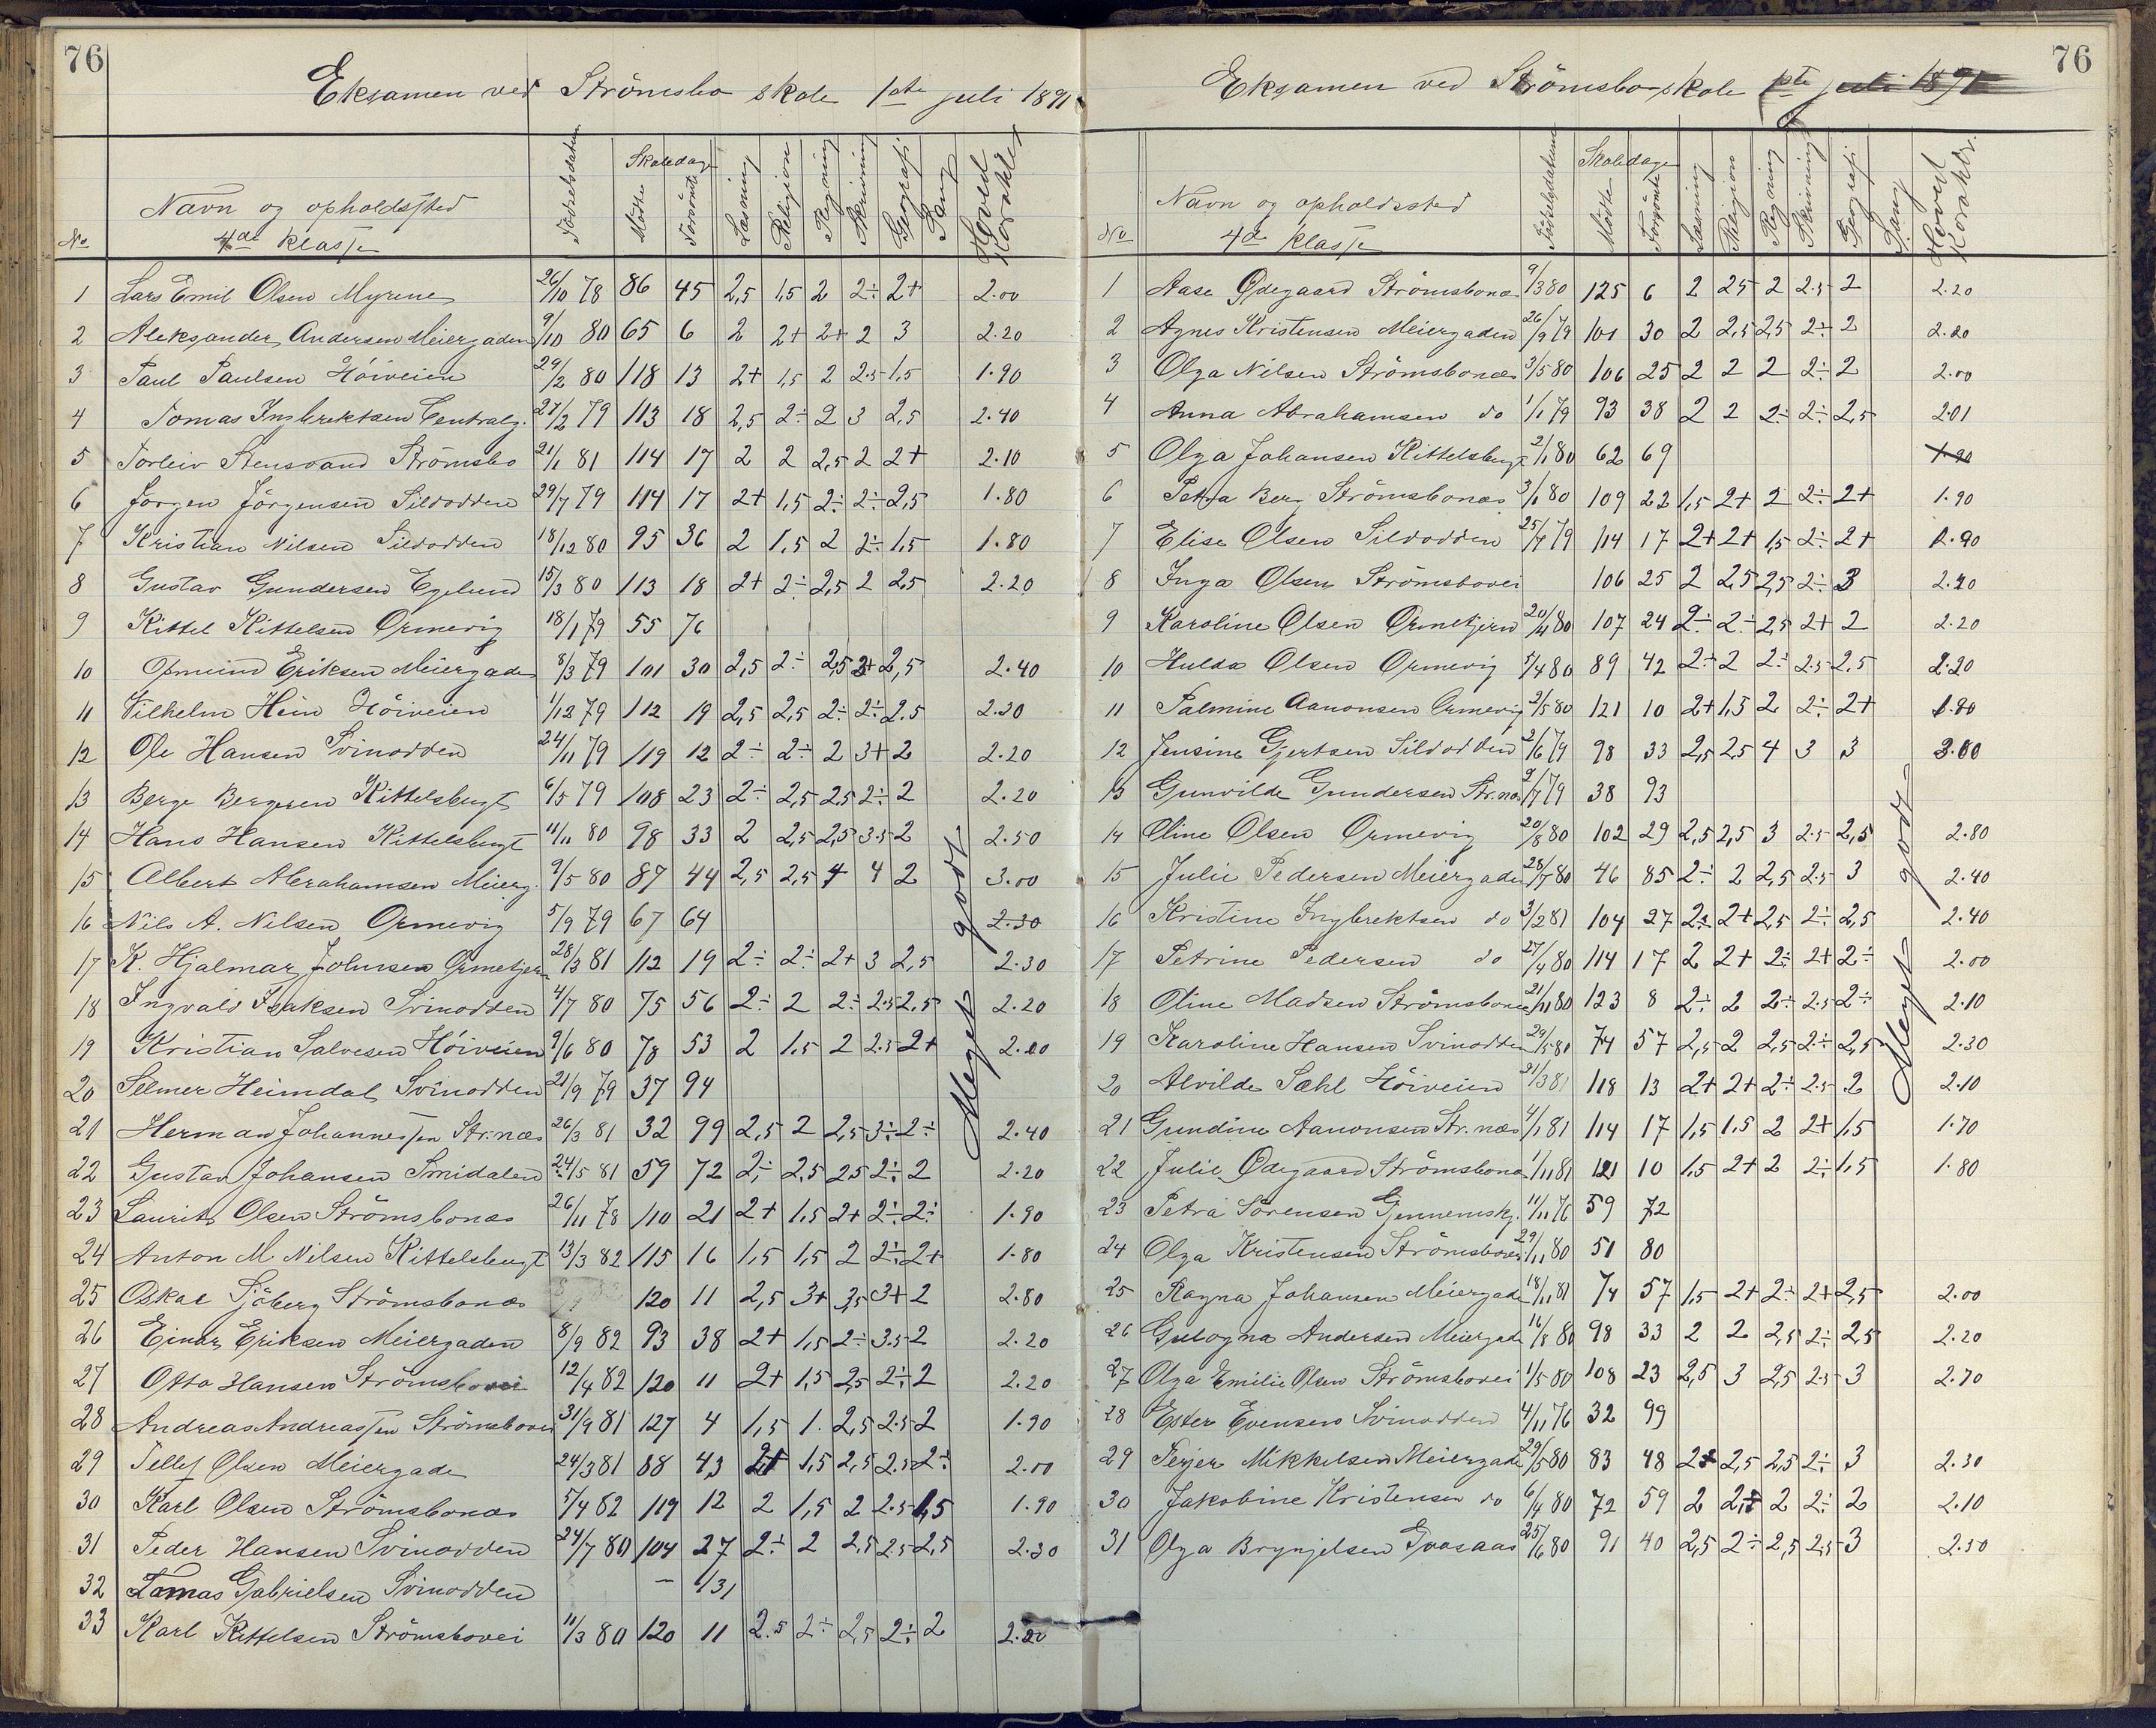 76
Eksamen ved Strömsbo skole 1ste juli 1891
No
Navn og opholdssted
4de klasse
Födselsdatum
Skoledage
Mödte
Forsömte
Læsning
Religion
Regning
Skrivning
Geografi
Sang
Hoved Karakter
1 Lars Emil Olsen Myrene 26/10 78 86 45 2,5 1,5 2 2÷ 2+ 2.00
2 Aleksander Andersen Meiergaden 9/10 80 65 6 2 2+ 2+ 2 3 2.20
3 Paul Paulsen Höiveien 29/2 80 118 13 2+ 1,5 2 2.5 1,5 1.90
4 Tomas Ingbrektsen Centralg. 27/2 79 113 18 2,5 2÷ 2 3 2,5 2.40
5 Torleiv Stensvand Strömsbo 21/1 81 114 17 2 2 2,5 2 2+ 2.10
6 Jörgen Jörgensen Sildodden 29/7 79 114 17 2+ 1,5 2÷ 2÷ 2,5 1.80
7 Kristian Nilsen Sildodden 18/12 80 95 36 2 1,5 2 2÷ 1,5 1.80
8 Gustav Gundersen Egelund 15/3 80 113 18 2+ 2÷ 2,5 2 2,5 2.20
9 Kittel Kittelsen Ormevig 18/1 79 55 76
10 Osmund Eriksen Meiergaden 8/3 79 101 30 2,5 2÷ 2,5 3+ 2,5 2.40
11 Vilhelm Hein Höiveien 1/12 79 112 19 2,5 2,5 2÷ 2÷ 2.5 2.30
12 Ole Hansen Svinodden 24/11 79 119 12 2÷ 2÷ 2 3+ 2 2.20
13 Berge Bergesen Kittelsbugt 6/5 79 108 23 2÷ 2,5 2,5 2÷ 2 2.20
14 Hans Hansen Kittelsbugt 11/11 80 98 33 2 2,5 2,5 3.5 2 2.50
15 Albert Abrahamsen Meierg. 9/5 80 87 44 2,5 2,5 4 4 2 3.00
16 Nils A. Nilsen Ormevig 5/9 79 67 64 2.30
17 K. Hjalmar Johnsen Ormetjern 28/3 81 112 19 2÷ 2÷ 2+ 3 2,5 2.30
18 Ingvald Isaksen Svinodden 4/7 80 75 56 2÷ 2 2÷ 2.5 2,5 2.20
19 Kristian Salvesen Höiveien 9/6 80 78 53 2 1,5 2 2.5 2+ 2.00
20 Selmer Heimdal Svinodden 21/9 79 37 94
21 Herman Johannessen Str.næs 26/3 81 32 99 2,5 2 2,5 3÷ 2÷ 2.40
22 Gustav Johansen Smidalen 24/5 81 59 72 2÷ 2,5 2,5 2÷ 2 2.20
23 Laurits Olsen Strömsbonæs 26/11 78 110 21 2+ 1,5 2+ 2÷ 2÷ 1.90
24 Anton M. Nilsen Kittelsbugt 13/3 82 115 16 1,5 1,5 2 2÷ 2+ 1.80
25 Oskar Sjöberg Strömsbonæs 120 11 2,5 3+ 3,5 3+ 2 2.80
26 Einar Eriksen Meiergaden 8/9 82 93 38 2+ 1,5 2÷ 3.5 2 2.20
27 Otto Hansen Strömsbovei 12/4 82 120 11 2+ 1,5 2,5 2÷ 2 2.20
28 Andreas Andreassen Strömsbovei 31/9 81 127 4 1,5 1. 2,5 2.5 2 1.90
29 Tellef Olsen Meiergade 24/3 81 88 43 2+ 1,5 2,5 2.5 2÷ 2.00
30 Karl Olsen Strömsbonæs 5/4 82 119 12 2 1,5 2 2.5 1,5 1.90
31 Peder Hansen Svinodden 24/7 80 104 27 2÷ 2 2,5 2.5 2,5 2.30
32 Tomas Gabrielsen Svinodden — 131
33 Karl Kittelsen Strömsbovei 11/3 80 120 11 2.5 2÷ 2,5 2÷ 2 2.20
Meget godt
76
Eksamen ved Strömsbo skole 1ste juli 1891
No
Navn og opholdssted
4de klasse
Födselsdatum
Skoledage
Mödte
Forsömte
Læsning
Religion
Regning
Skrivning
Geografi
Sang
Hoved Karakter
1 Aase Ødegaard Strömsbonæs 9/3 80 125 6 2 2,5 2 2.5 2 2.20
2 Agnes Kristensen Meiergaden 26/9 79 101 30 2 2,5 2,5 2÷ 2 2.20
3 Olga Nilsen Strömsbonæs 3/5 80 106 25 2 2 2 2÷ 2 2.00
4 Anna Abrahamsen do 1/1 79 93 38 2 2 2÷ 2÷ 2,5 2.01
5 Olga Johansen Kittelsbugt 2/1 80 62 69 1.90
6 Petra Berg Strömsbonæs 3/1 80 109 22 1,5 2+ 2 2÷ 2+ 1.90
7 Elise Olsen Sildodden 25/7 79 114 17 2+ 2+ 1,5 2÷ 2+ 1.90
8 Inga Olsen Strömsbovei 106 25 2 2,5 2,5 2÷ 3 2.40
9 Karoline Olsen Ormetjern 20/4 80 107 24 2÷ 2÷ 2,5 2+ 2 2.20
10 Hulda Olsen Ormevig 5/4 80 89 42 2÷ 2 2÷ 2.5 2,5 2.20
11 Palmine Aanonsen Ormevig 2/5 80 121 10 2+ 1,5 2 2÷ 2+ 1.80
12 Jensine Gjertsen Sildodden 2/6 79 98 33 2,5 2,5 4 3 3 3.00
13 Gunvilde Gundersen Str.næs 9/7 79 38 93
14 Oline Olsen Ormevig 20/8 80 102 29 2,5 2,5 3 2.5 2,5 2.80
15 Julie Pedersen Meiergade 28/7 80 46 85 2÷ 2 2,5 2.5 3 2.40
16 Kristine Ingbrektsen do 3/2 81 104 27 2÷ 2+ 2,5 2÷ 2,5 2.40
17 Petrine Pedersen do 27/4 80 114 17 2 2+ 2÷ 2+ 2÷ 2.00
18 Oline Madsen Strömsbonæs 21/11 80 123 8 2÷ 2 2÷ 2.5 2÷ 2.10
19 Karoline Hansen Svinodden 29/5 80 74 57 2,5 2 2,5 2÷ 2,5 2.30
20 Alvilde Sæhl Höiveien 21/3 81 118 13 2+ 2+ 2÷ 2.5 2 2.10
21 Gundine Aanonsen Str.næs 4/1 81 114 17 1,5 1,5 2 2+ 1,5 1.70
22 Julie Ødegaard Strömsbonæs 1/11 81 121 10 1,5 2+ 2 2÷ 1,5 1.80
23 Petra Sörensen Gjennemskj. 11/11 76 59 72
24 Olga Kristensen Strömsbovei 29/11 80 51 80
25 Ragna Johansen Meiergade 18/11 81 74 57 1,5 2+ 2÷ 2+ 2,5 2.00
26 Gubogna Andersen Meiergade 16/8 80 98 33 2 2 2,5 2÷ 2,5 2.20
27 Olga Emilie Olsen Strömsbovei 1/5 80 108 23 2,5 3 2,5 2.5 3 2.70
28 Ester Evensen Svinodden 4/11 76 32 99
29 Terjer Mikkelsen Meiergade 29/5 80 83 48 2+ 2,5 2,5 2÷ 3 2.30
30 Jakobine Kristensen do 6/4 80 72 59 2 2+ 2 2÷ 2 2.10
31 Olga Brynjelsen Gvasaas 25/6 80 91 40 2,5 2÷ 2,5 2,5 3 2.50
Meget godt